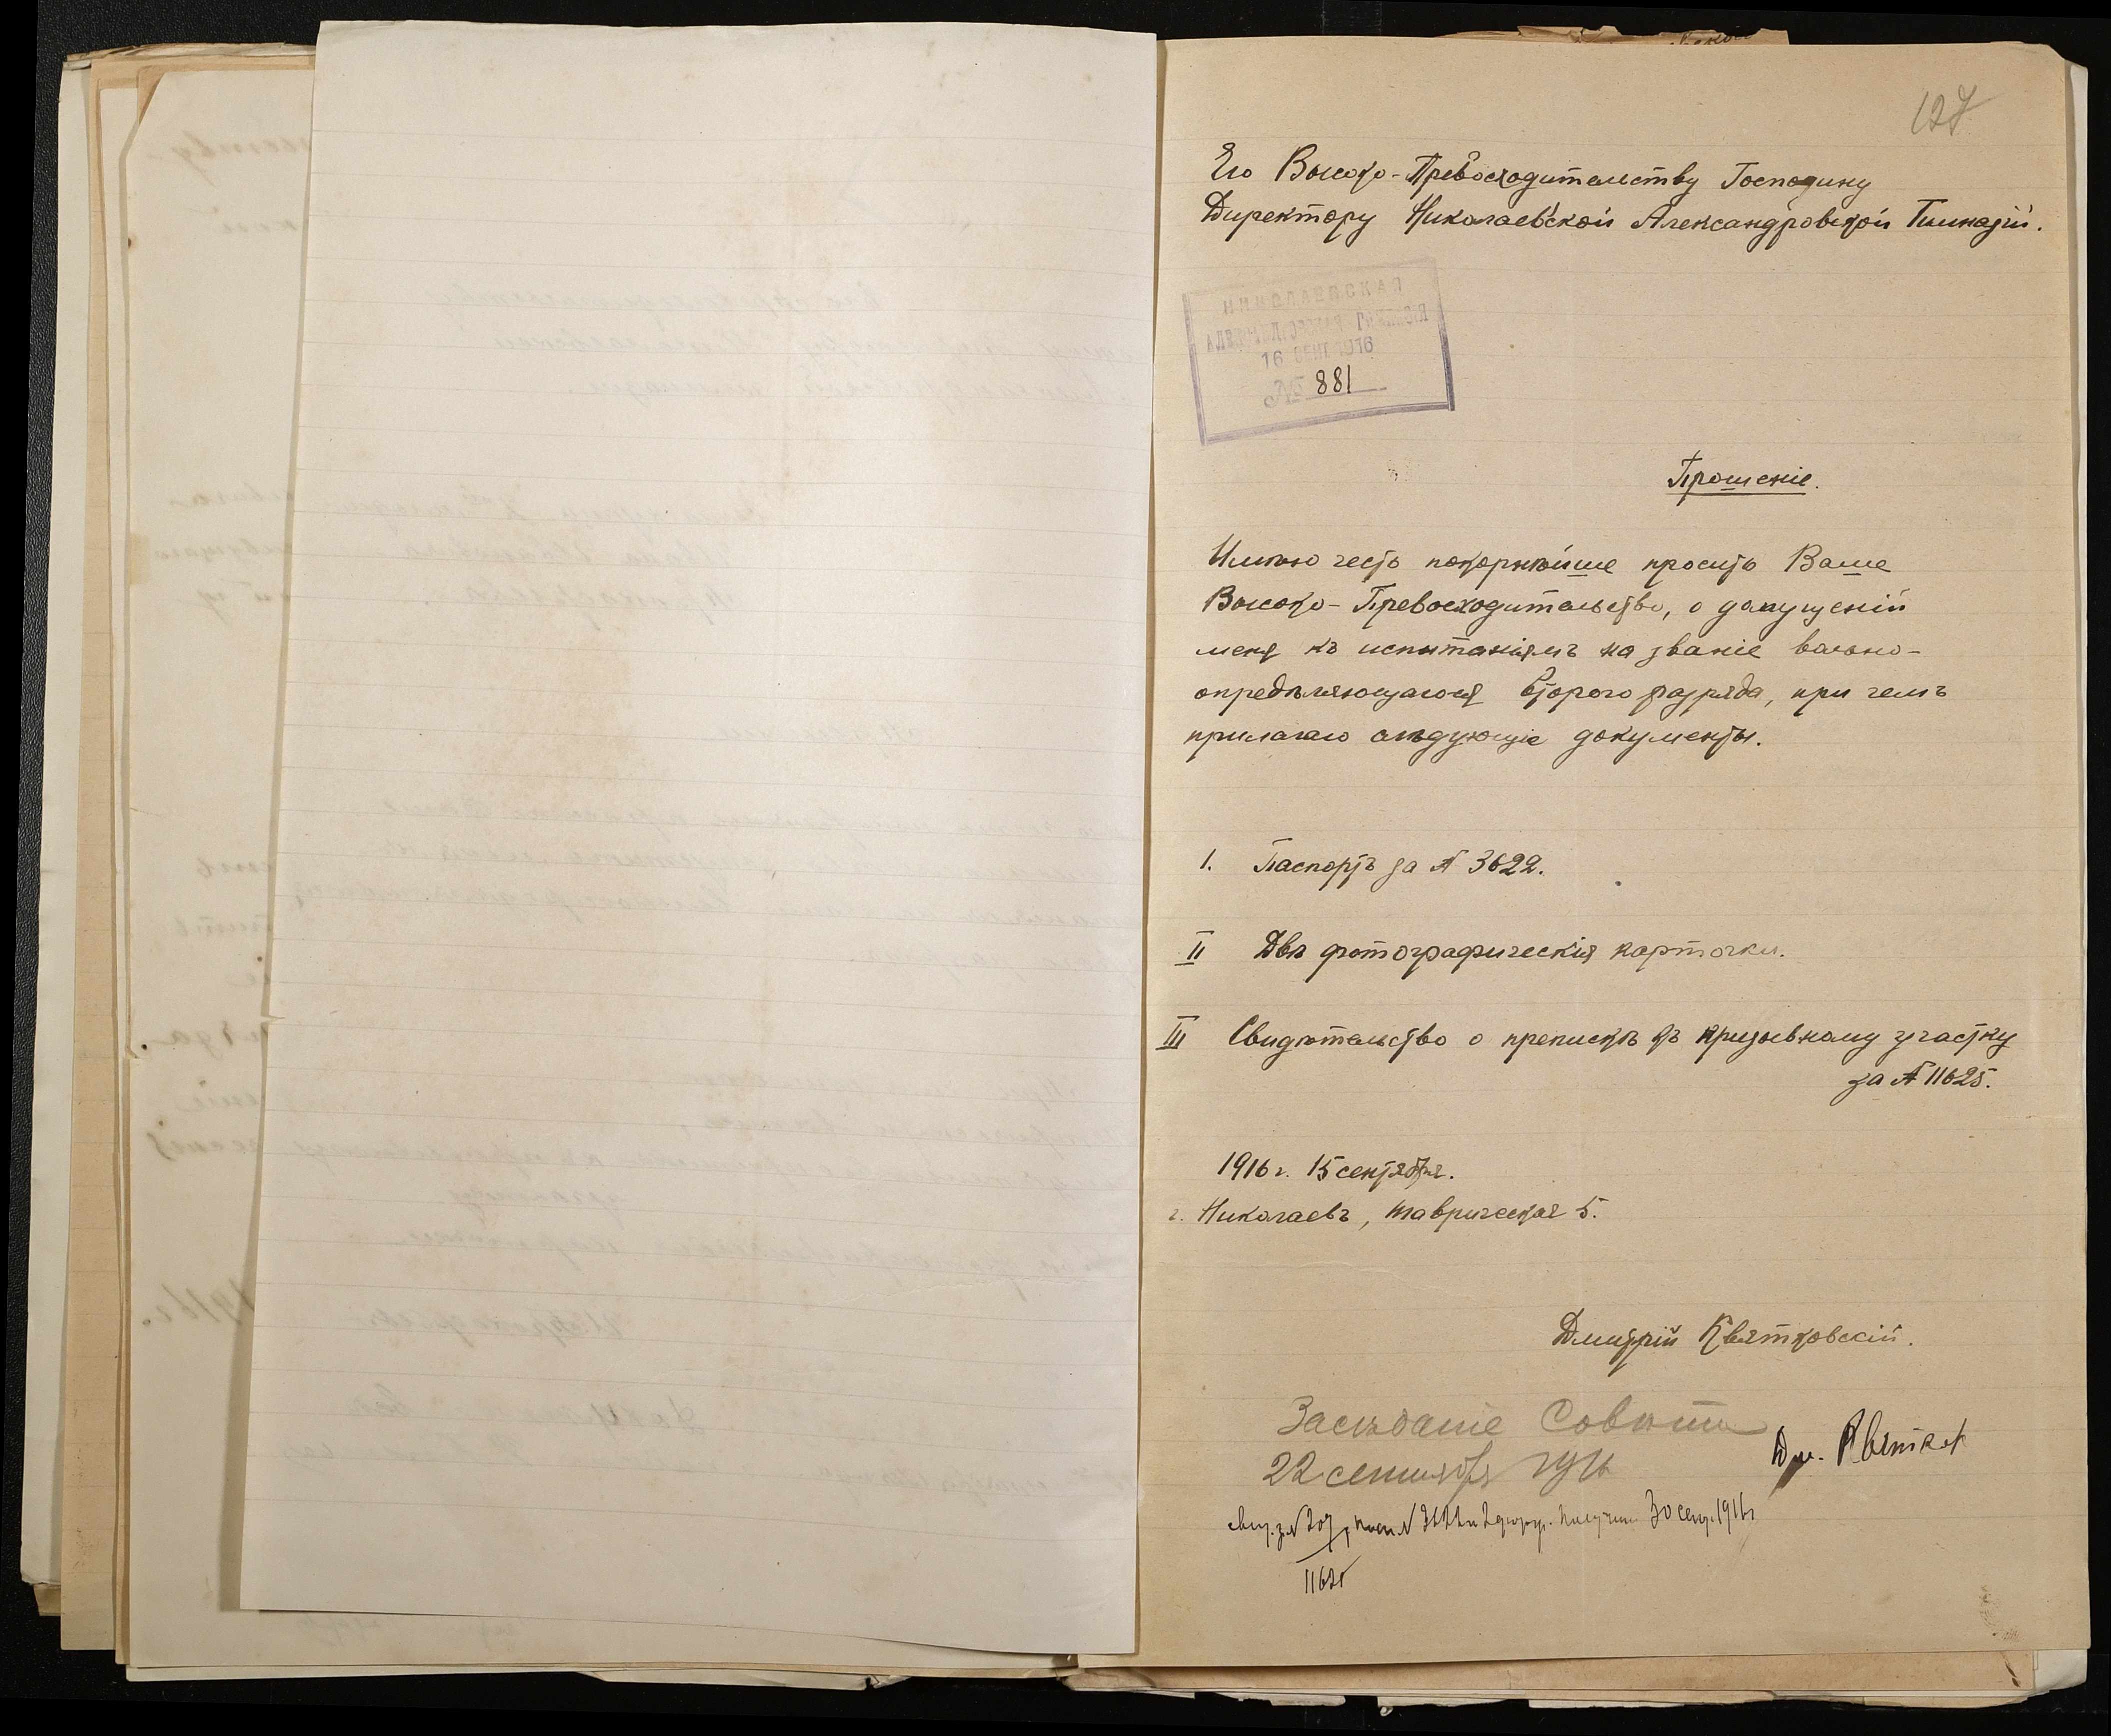 127
Его Высоко-Превосходительству Господину
Директору Николаевской Александровской Гимназіи.
НИКОЛАЕВСКАЯ
АЛЕКСАНДРОВСКАЯ ГИМНАЗІЯ
16 СЕНТ 1916
№ 881
Прошеніе.
Имѣю честь покорнѣйше просить Ваше
Высоко-Превосходительство, о допущеніи
меня къ испытаніямъ на званіе вольно-
опредѣляющагося второго разряда, при чемъ
прилагаю слѣдующіе документы.
1. Паспортъ за № 3622.
II Двѣ фотографическія карточки.
III Свидѣтельство о препискѣ къ призывному участку
за № 11625.
1916 г. 15 сентября.
г. Николаевъ, Таврическая 5.
Дмитрій Квятковскій.
Засѣданіе Совѣта
22 сентября 1916
Дм. Квятк
свид. за № 207, пасп. № 3622 и 2 фотогр. получилъ 30 сент. 1916 г
11625